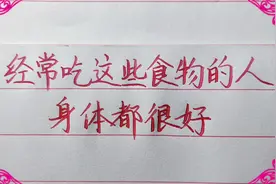 经常吃这些食物的人
身体都很好